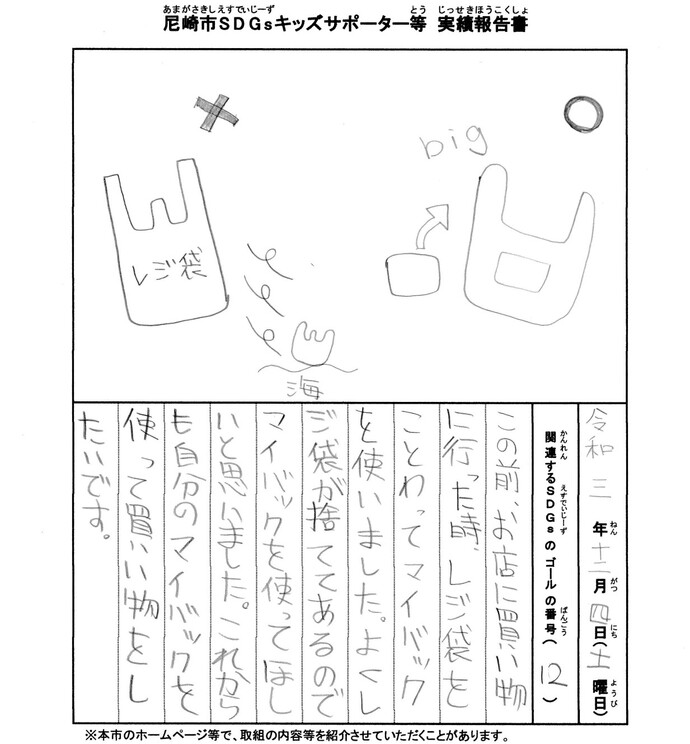 あまがさきしえすでぃじーず とう じっせきほうこくしょ
尼崎市SDGsキッズサポーター等 実績報告書
big
レジ袋
海
令和三年十二月四日(土曜日)
ねん がつ にち ようび
関連するSDGsのゴールの番号(12)
かんれん えすでぃじーず ばんごう
この前、お店に買い物
に行った時、レジ袋を
ことわってマイバック
を使いました。よくレ
ジ袋が捨ててあるので
マイバックを使ってほし
いと思いました。これから
も自分のマイバックを
使って買いい物をし
たいです。
※本市のホームページ等で、取組の内容等を紹介させていただくことがあります。